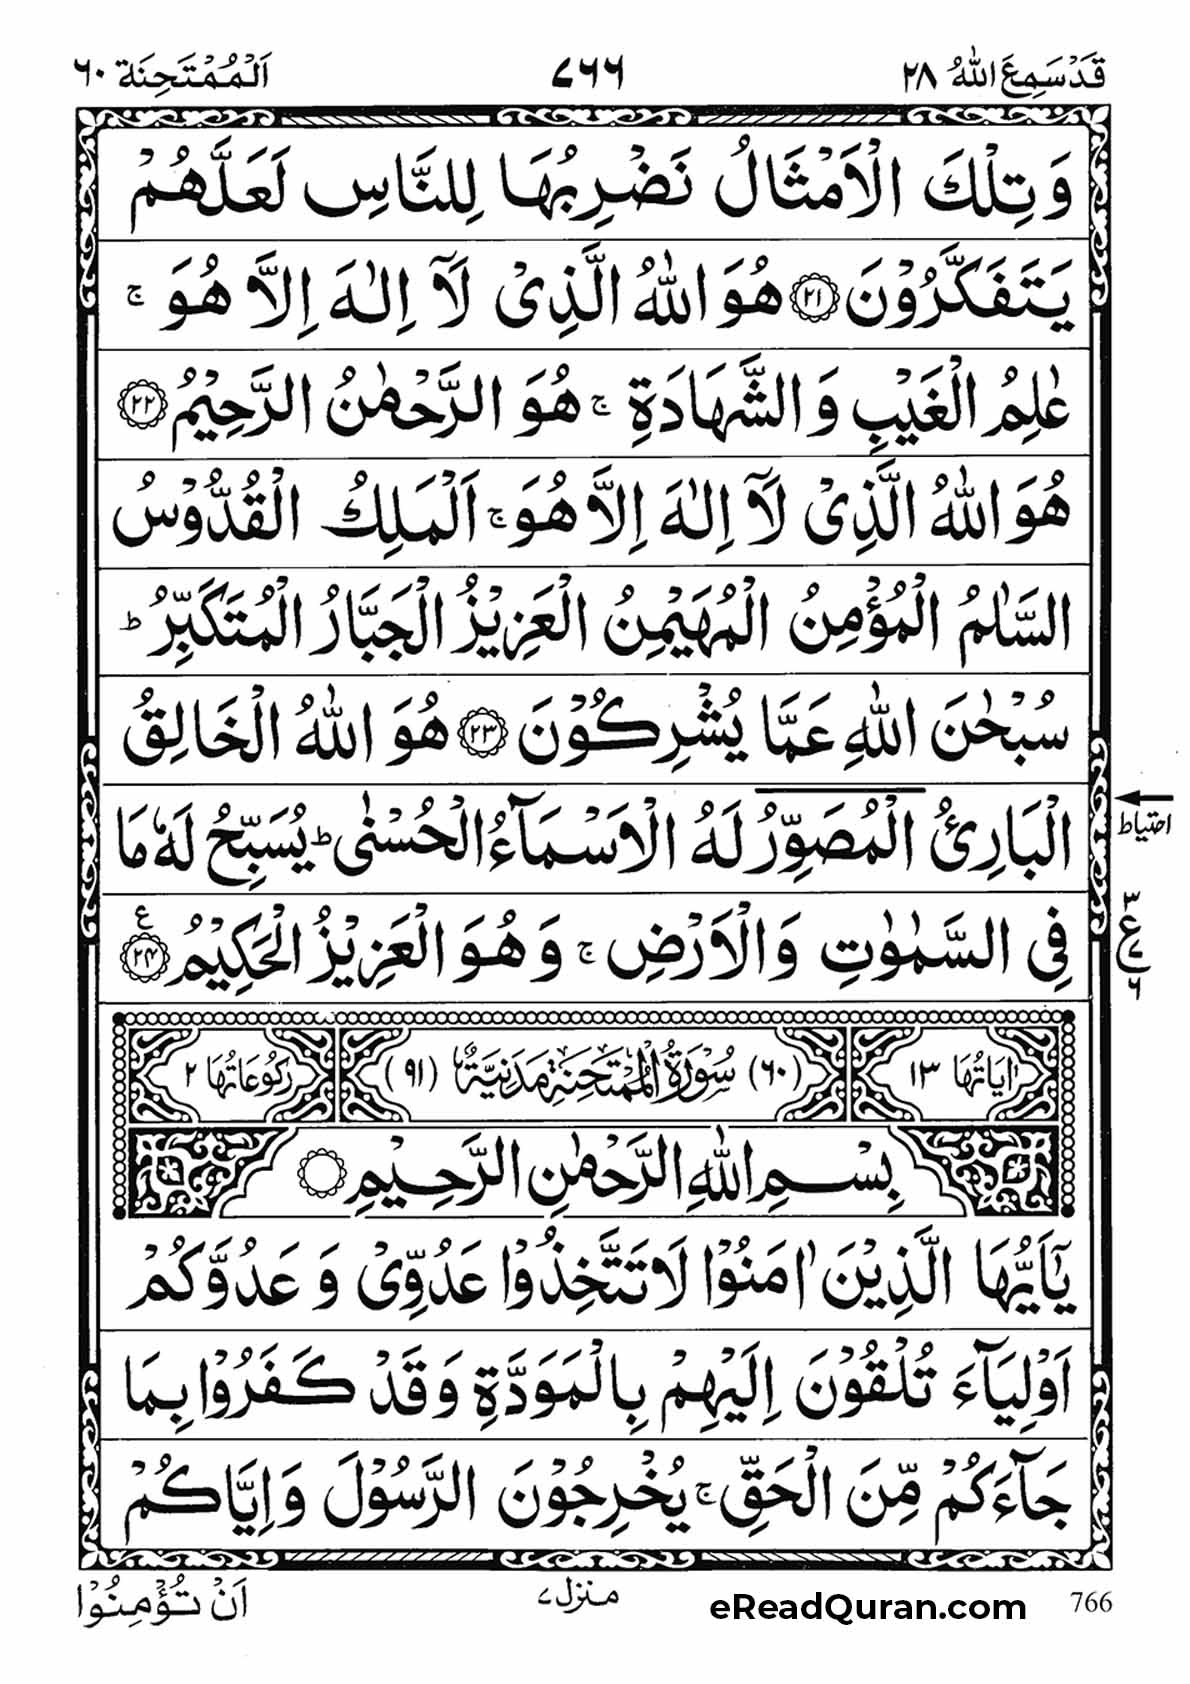 قَدْ سَمِعَ اللّٰهُ ٢٨
٧٦٦
اَلْمُمْتَحِنَة ٦٠
وَ تِلْكَ الْاَمْثَالُ نَضْرِبُهَا لِلنَّاسِ لَعَلَّهُمْ
يَتَفَكَّرُوْنَ ﴿٢١﴾ هُوَ اللّٰهُ الَّذِىْ لَاۤ اِلٰهَ اِلَّا هُوَ ۚ
عٰلِمُ الْغَيْبِ وَ الشَّهَادَةِ ۚ هُوَ الرَّحْمٰنُ الرَّحِيْمُ ﴿٢٢﴾
هُوَ اللّٰهُ الَّذِىْ لَاۤ اِلٰهَ اِلَّا هُوَ ۚ اَلْمَلِكُ الْقُدُّوْسُ
السَّلٰمُ الْمُؤْمِنُ الْمُهَيْمِنُ الْعَزِيْزُ الْجَبَّارُ الْمُتَكَبِّرُ ؕ
سُبْحٰنَ اللّٰهِ عَمَّا يُشْرِكُوْنَ ﴿٢٣﴾ هُوَ اللّٰهُ الْخَالِقُ
الْبَارِئُ الْمُصَوِّرُ لَهُ الْاَسْمَآءُ الْحُسْنٰى ؕ يُسَبِّحُ لَهٗ مَا
احتیاط
فِى السَّمٰوٰتِ وَ الْاَرْضِ ۚ وَ هُوَ الْعَزِيْزُ الْحَكِيْمُ ﴿٢٤﴾ ع
٣ ع ٦
اٰيَاتُهَا ١٣
(٦٠) سُوْرَةُ الْمُمْتَحِنَةِ مَدَنِيَّةٌ (٩١)
رُكُوْعَاتُهَا ٢
بِسْمِ اللّٰهِ الرَّحْمٰنِ الرَّحِيْمِ
يٰۤاَيُّهَا الَّذِيْنَ اٰمَنُوْا لَا تَتَّخِذُوْا عَدُوِّىْ وَ عَدُوَّكُمْ
اَوْلِيَآءَ تُلْقُوْنَ اِلَيْهِمْ بِالْمَوَدَّةِ وَ قَدْ كَفَرُوْا بِمَا
جَآءَكُمْ مِّنَ الْحَقِّ ۚ يُخْرِجُوْنَ الرَّسُوْلَ وَ اِيَّاكُمْ
اَنْ تُؤْمِنُوْا
منزل ٧
eReadQuran.com
766